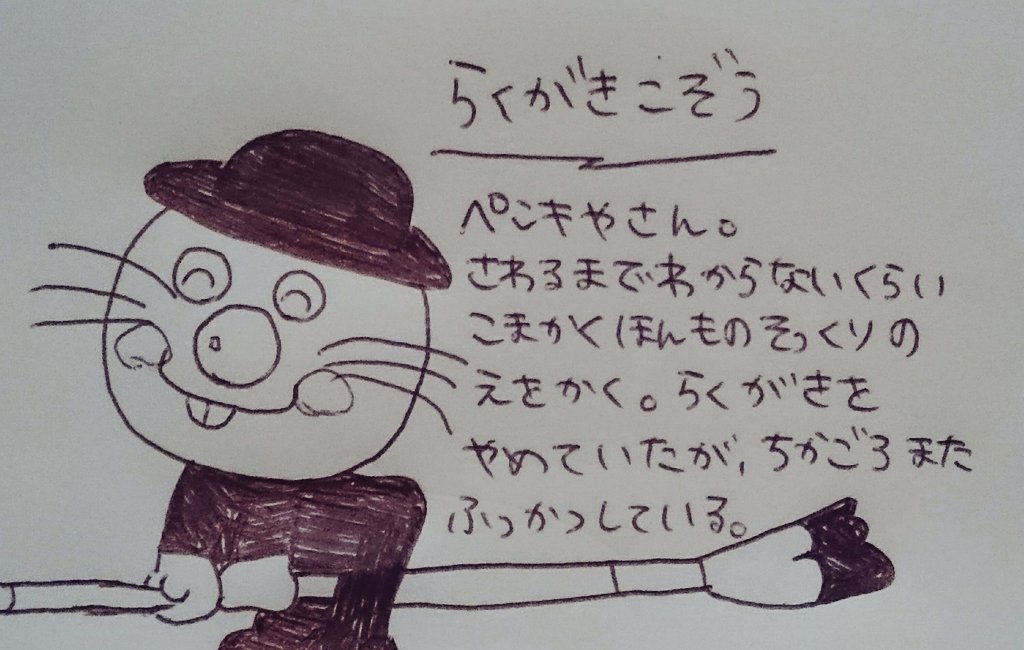 らくがきこぞう
ペンキやさん。
さわるまでわからないくらい
こまかくほんものそっくりの
えをかく。らくがきを
やめていたが、ちかごろまた
ふっかつしている。